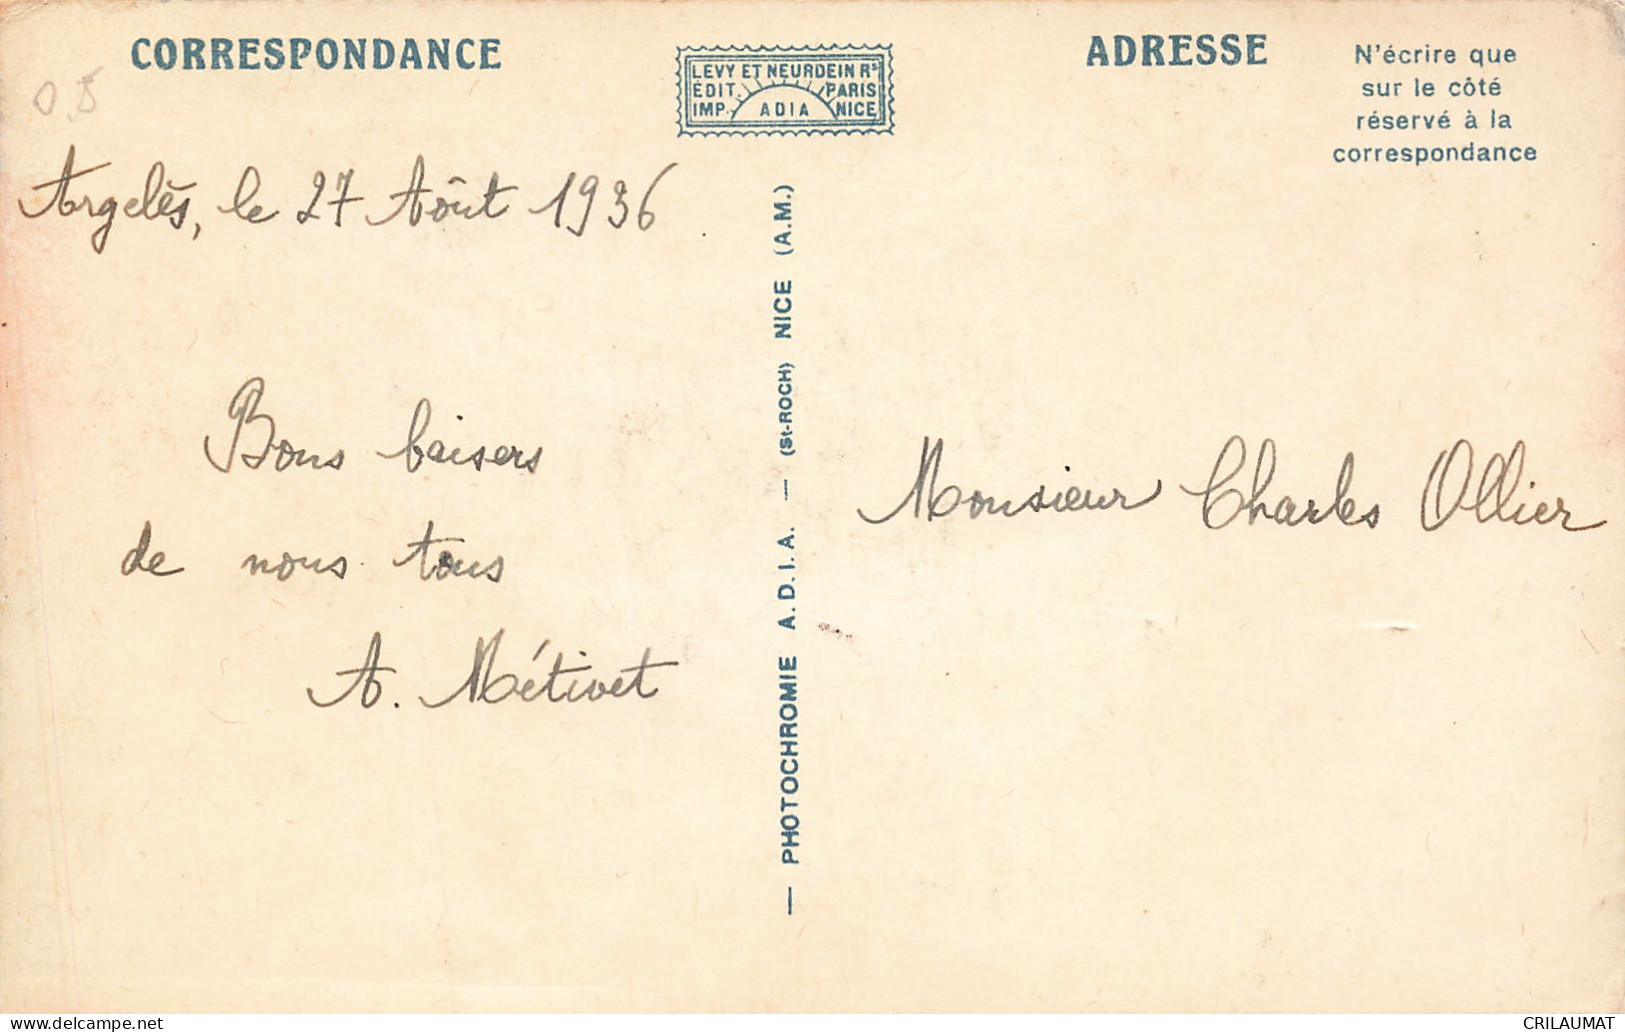 CORRESPONDANCE
LEVY ET NEURDEIN Rs
ÉDIT. PARIS
IMP. ADIA NICE
ADRESSE
N'écrire que
sur le côté
réservé à la
correspondance
0,5
Argelès, le 27 Août 1936
Bons baisers
de nous tous
A. Métivet
— PHOTOCHROMIE A.D.I.A. — (St-ROCH) NICE (A.M.)
Monsieur Charles Ollier
www.delcampe.net
CRILAUMAT